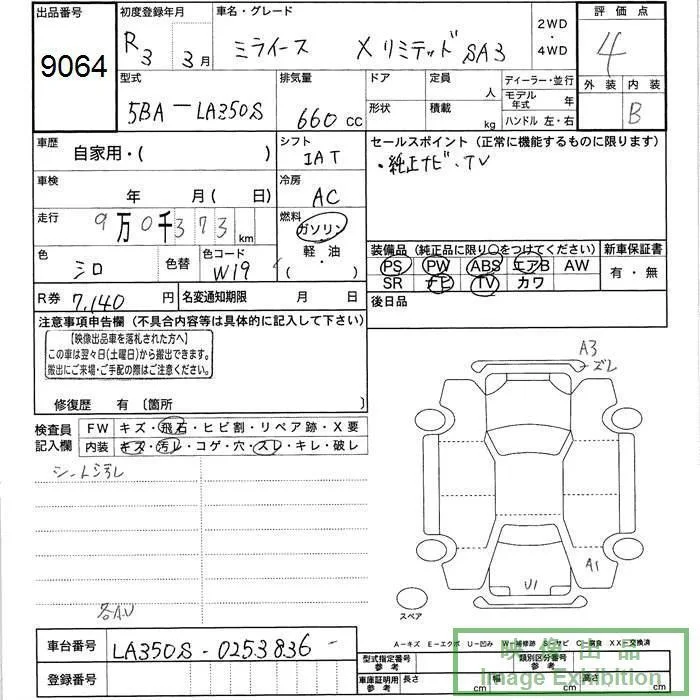 出品番号 9064 初度登録年月 R3 3月 車名・グレード ミライース X リミテッド SA3 2WD・4WD 評価点 4
型式 5BA-LA350S 排気量 660 cc ドア 形状 定員 人 積載 kg ディーラー・並行 モデル年式 年 ハンドル 左・右 外装 内装 B
車歴 自家用・( ) シフト IAT セールスポイント(正常に機能するものに限ります)
・純正ナビ・TV
車検 年 月( 日) 冷房 AC
走行 9万0千373km 燃料 ガソリン 軽・油 ( )
色 シロ 色替 色コード W19
装備品(純正品に限り○をつけてください) 新車保証書
PS PW ABS エアB AW 有・無
SR ナビ TV カワ
R券 7,140円 名変通知期限 月 日 後日品
注意事項申告欄(不具合内容等は具体的に記入して下さい)
【映像出品車を落札された方へ】
この車は翌々日(土曜日)から搬出できます。
搬出にご来場・ご手配の際はご注意ください。
修復歴 有〔箇所 〕
A3
ズレ
検査員記入欄 FW キズ・飛石・ヒビ割・リペア跡・X要
内装 キズ・汚レ・コゲ・穴・スレ・キレ・破レ
シート汚レ
U1
A1
各A.U
スペア
A－キズ E－エクボ U－凹み W－補修跡 S－サビ C－腐食 XX－交換済
車台番号 LA350S-0253836-
登録番号
型式指定番号 参考 類別区分番号 参考
車庫証明用 参考 長さ cm 幅 cm cm
映像出品
Image Exhibition